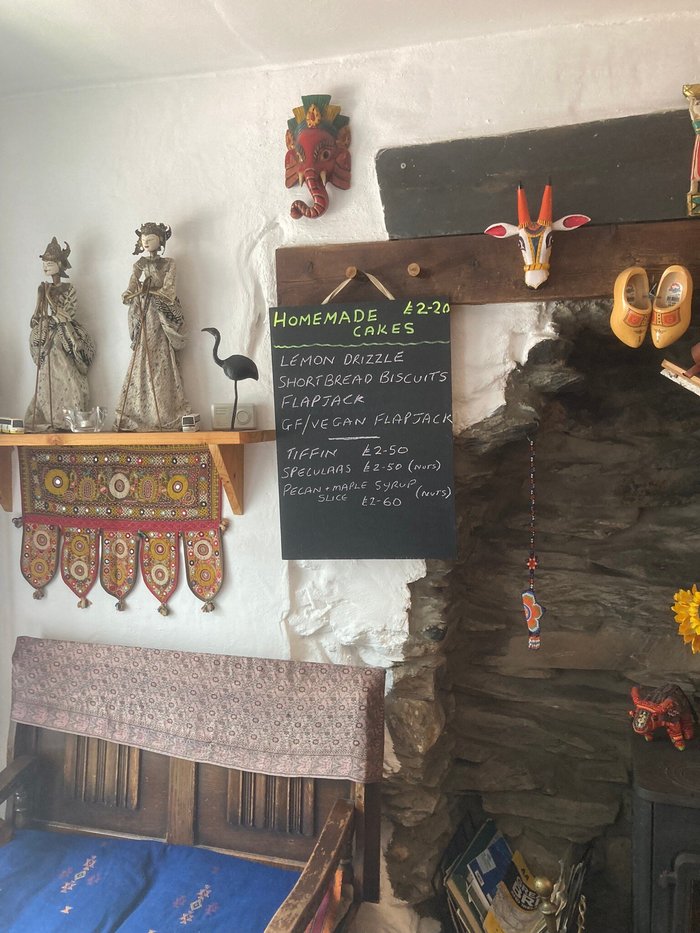 HOMEMADE £2-20
CAKES
LEMON DRIZZLE
SHORTBREAD BISCUITS
FLAPJACK
GF/VEGAN FLAPJACK
TIFFIN £2-50
SPECULAAS £2-50 (NUTS)
PECAN + MAPLE SYRUP (NUTS)
SLICE £2-60